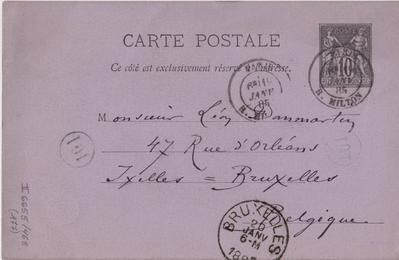 CARTE POSTALE
Ce côté est exclusivement réservé à l'adresse.
10
PARIS
JANV
85
R. MILTON
JANV
85
Monsieur Léon Dommartin
47 Rue d'Orléans
Ixelles = Bruxelles
Belgique
BRUXELLES
20
JANV
6-M